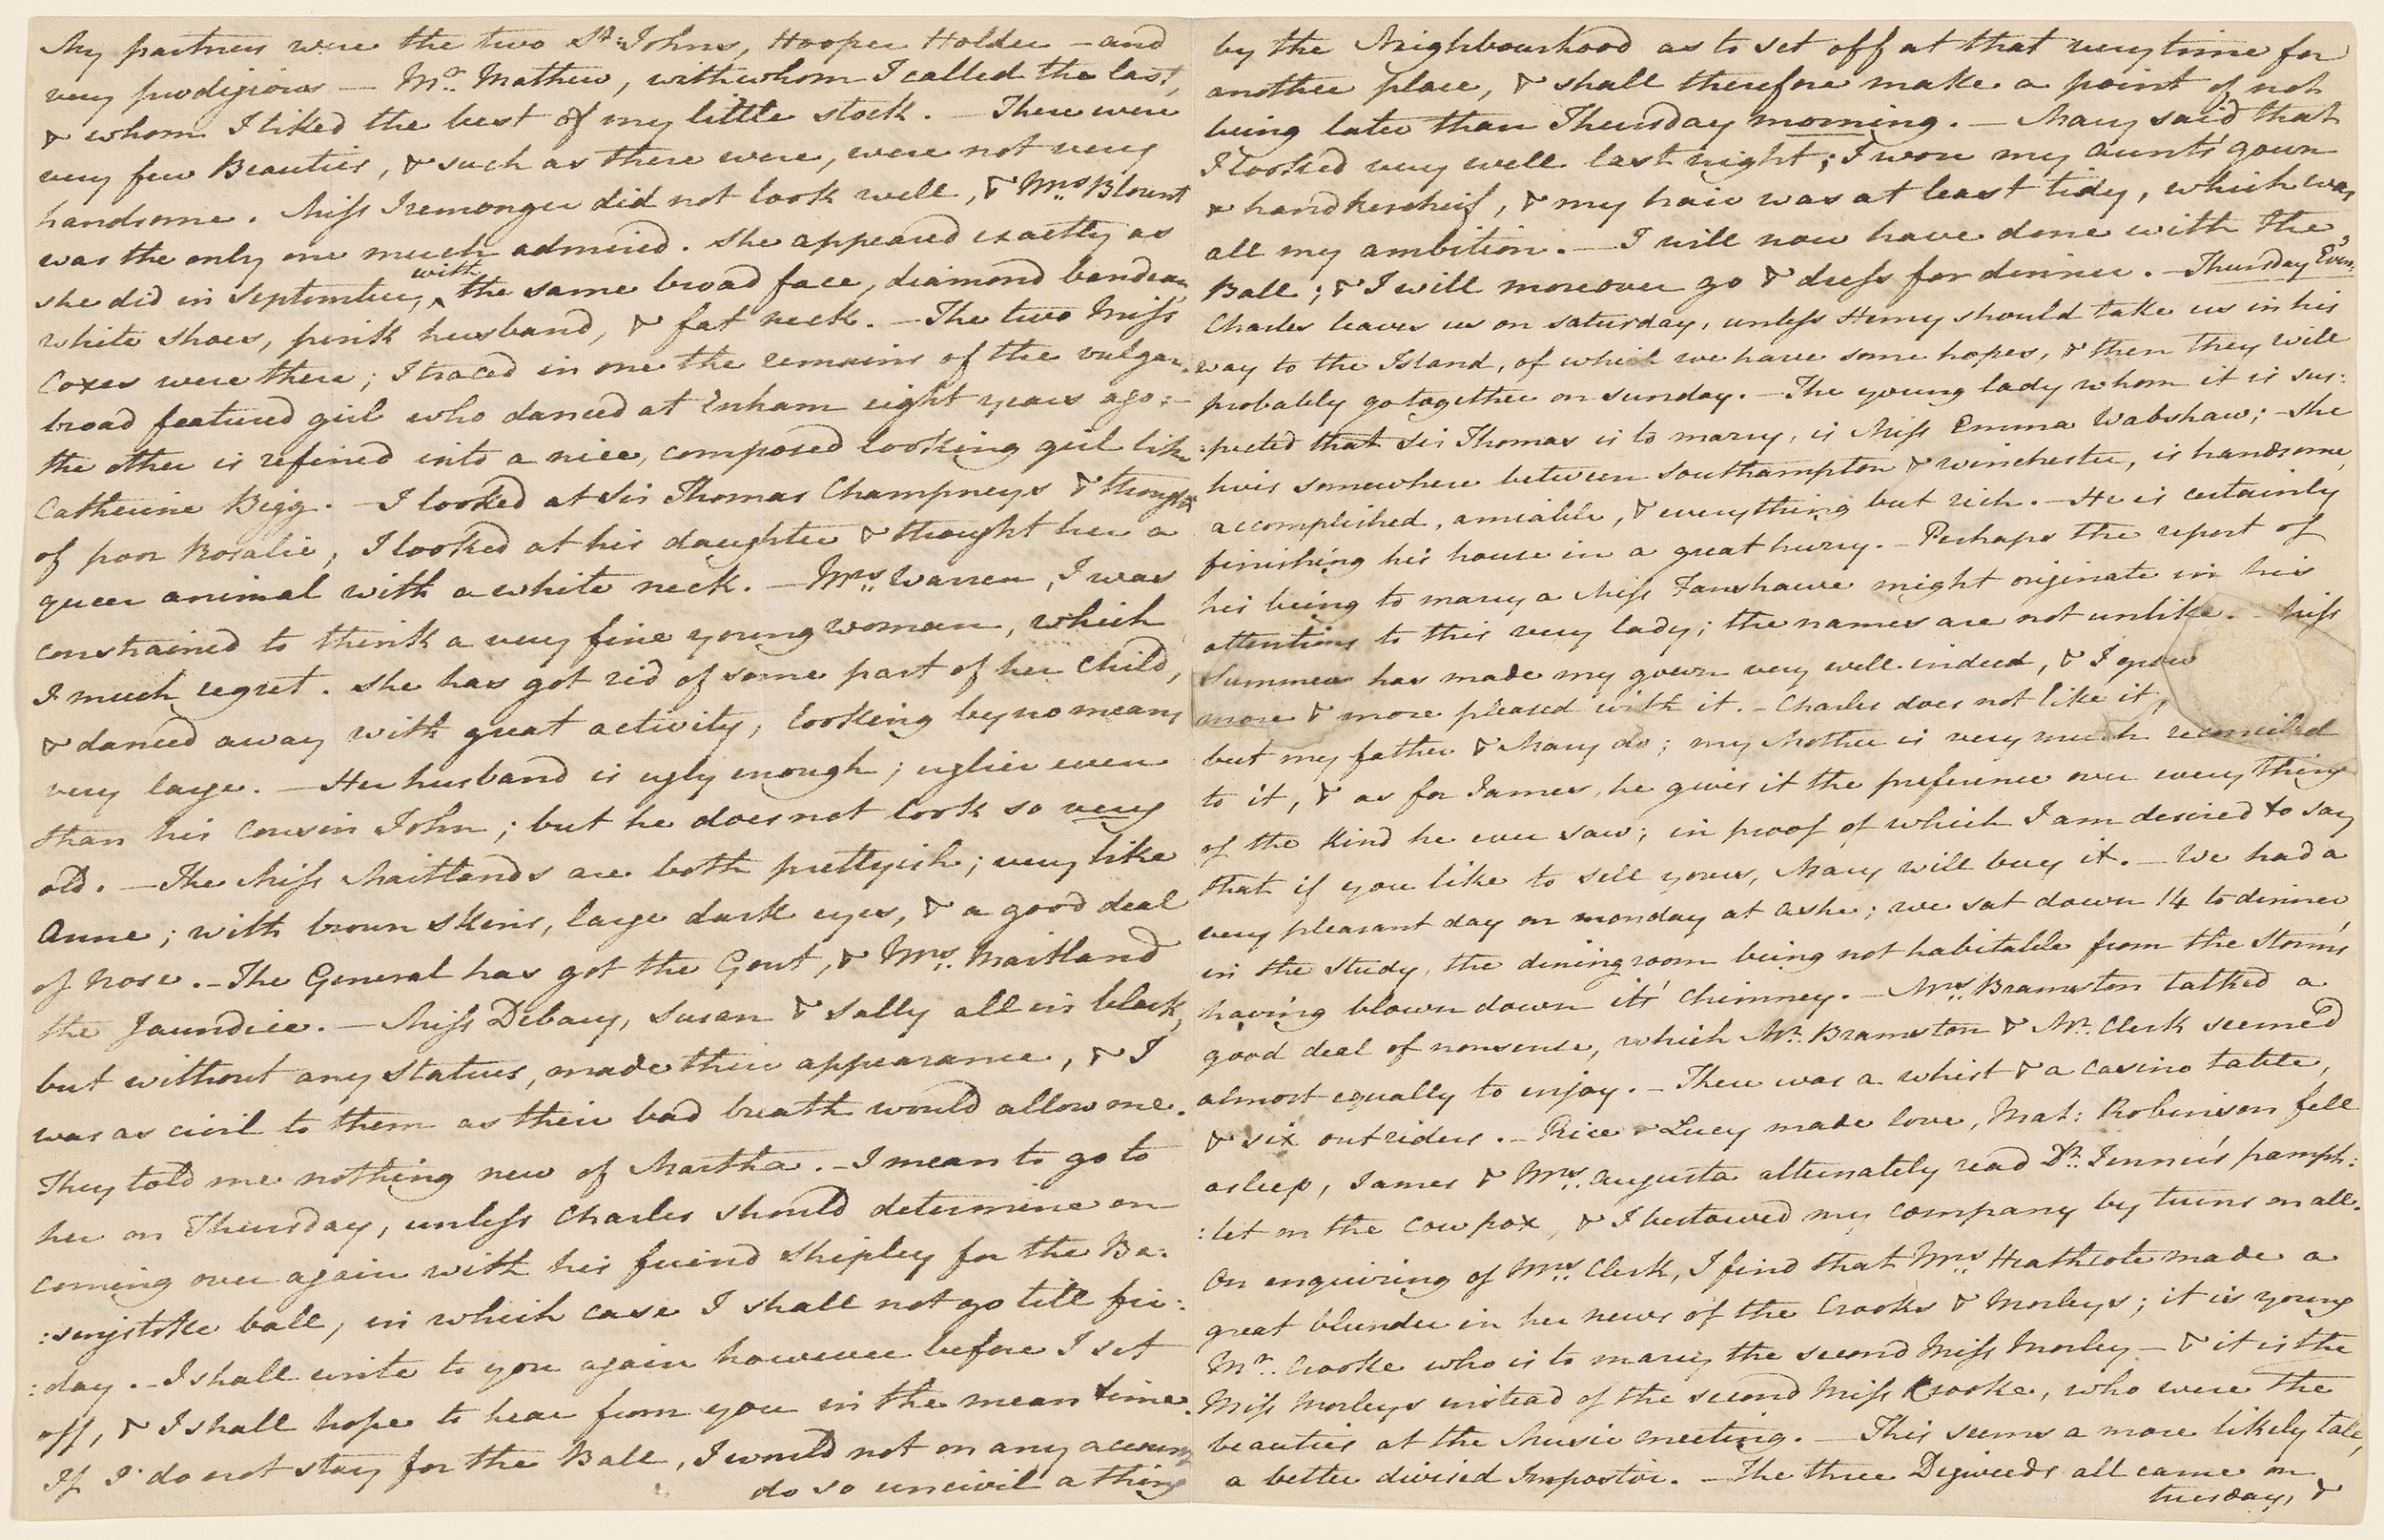 My partners were the two St: Johns, Hooper Holder – and
very prodigious — Mr. Mathew, with whom I called the last,
& whom I liked the best of my little stock. — There were
very few Beauties, & such as there were, were not very
handsome. Miss Iremonger did not look well, & Mrs. Blount
was the only one much admired. She appeared exactly as
she did in September, with the same broad face, diamond bandeau,
white shoes, pink husband, & fat neck. — The two Miss
Coxes were there; I traced in one the remains of the vulgar,
broad featured girl who danced at Enham eight years ago; –
the other is refined into a nice, composed looking girl like
Catherine Bigg. — I looked at Sir Thomas Champneys & thought
of poor Rosalie; I looked at his daughter & thought her a
queer animal with a white neck. — Mrs. Warren, I was
constrained to think a very fine young woman, which
I much regret. She has got rid of some part of her child,
& danced away with great activity, looking by no means
very large. — Her husband is ugly enough; uglier even
than his cousin John; but he does not look so very
old. — The Miss Maitlands are both prettyish; very like
Anne; with brown skins, large dark eyes, & a good deal
of nose. — The General has got the Gout, & Mrs. Maitland
the Jaundice. — Miss Debary, Susan & Sally all in black,
but without any Statues, made their appearance, & I
was as civil to them as their bad breath would allow me.
They told me nothing new of Martha. — I mean to go to
her on Thursday, unless Charles should determine on
coming over again with his friend Shipley for the Ba:
:singstoke ball, in which case I shall not go till fri:
:day. — I shall write to you again however before I set
off, & I shall hope to hear from you in the mean time.
If I do not stay for the Ball, I would not on any account
do so uncivil a thing
by the Neighbourhood as to set off at that very time for
another place, & shall therefore make a point of not
being later than Thursday morning. — Mary said that
I looked very well last night; I wore my aunt's gown
& handkercheif, & my hair was at least tidy, which was
all my ambition. — I will now have done with the
Ball; & I will moreover go & dress for dinner. — Thursday Eveng.
Charles leaves us on saturday, unless Henry should take us in his
way to the Island, of which we have some hopes, & then they will
probably go together on sunday. — The young lady whom it is sus:
:pected that Sir Thomas is to marry, is Miss Emma Wabshaw; – she
lives somewhere between Southampton & Winchester, is handsome,
accomplished, amiable, & everything but rich. — He is certainly
finishing his house in a great hurry. — Perhaps the report of
his being to marry a Miss Fanshawe might originate in his
attentions to this very lady; the names are not unlike. — Miss
Summers has made my gown very well indeed, & I grow
more & more pleased with it. — Charles does not like it,
but my father & Mary do; my Mother is very much reconciled
to it, & as for James, he gives it the preference over every thing
of the kind he ever saw; in proof of which I am desired to say
that if you like to sell yours, Mary will buy it. — We had a
very pleasant day on monday at Ashe; we sat down 14 to dinner
in the study, the dining room being not habitable from the Storm's
having blown down it's chimney. — Mrs. Bramston talked a
good deal of nonsense, which Mr. Bramston & Mr. Clerk seemed
almost equally to enjoy. — There was a whist & a casino table,
& six outsiders. — Rice & Lucy made love, Mat: Robinson fell
asleep, James & Mrs. Augusta alternately read Dr. Jenner's pamph:
:let on the cow pox, & I bestowed my company by turns on all.
On enquiring of Mrs. Clerk, I find that Mrs. Heathcote made a
great blunder in her news of the Crooks & Morleys; it is young
Mr. Crooke who is to marry the second Miss Morley — & it is the
Miss Morleys instead of the second Miss Crooke, who were the
beauties at the Music meeting. — This seems a more likely tale,
a better devised Impostor. — The three Digweeds all came on
tuesday, &